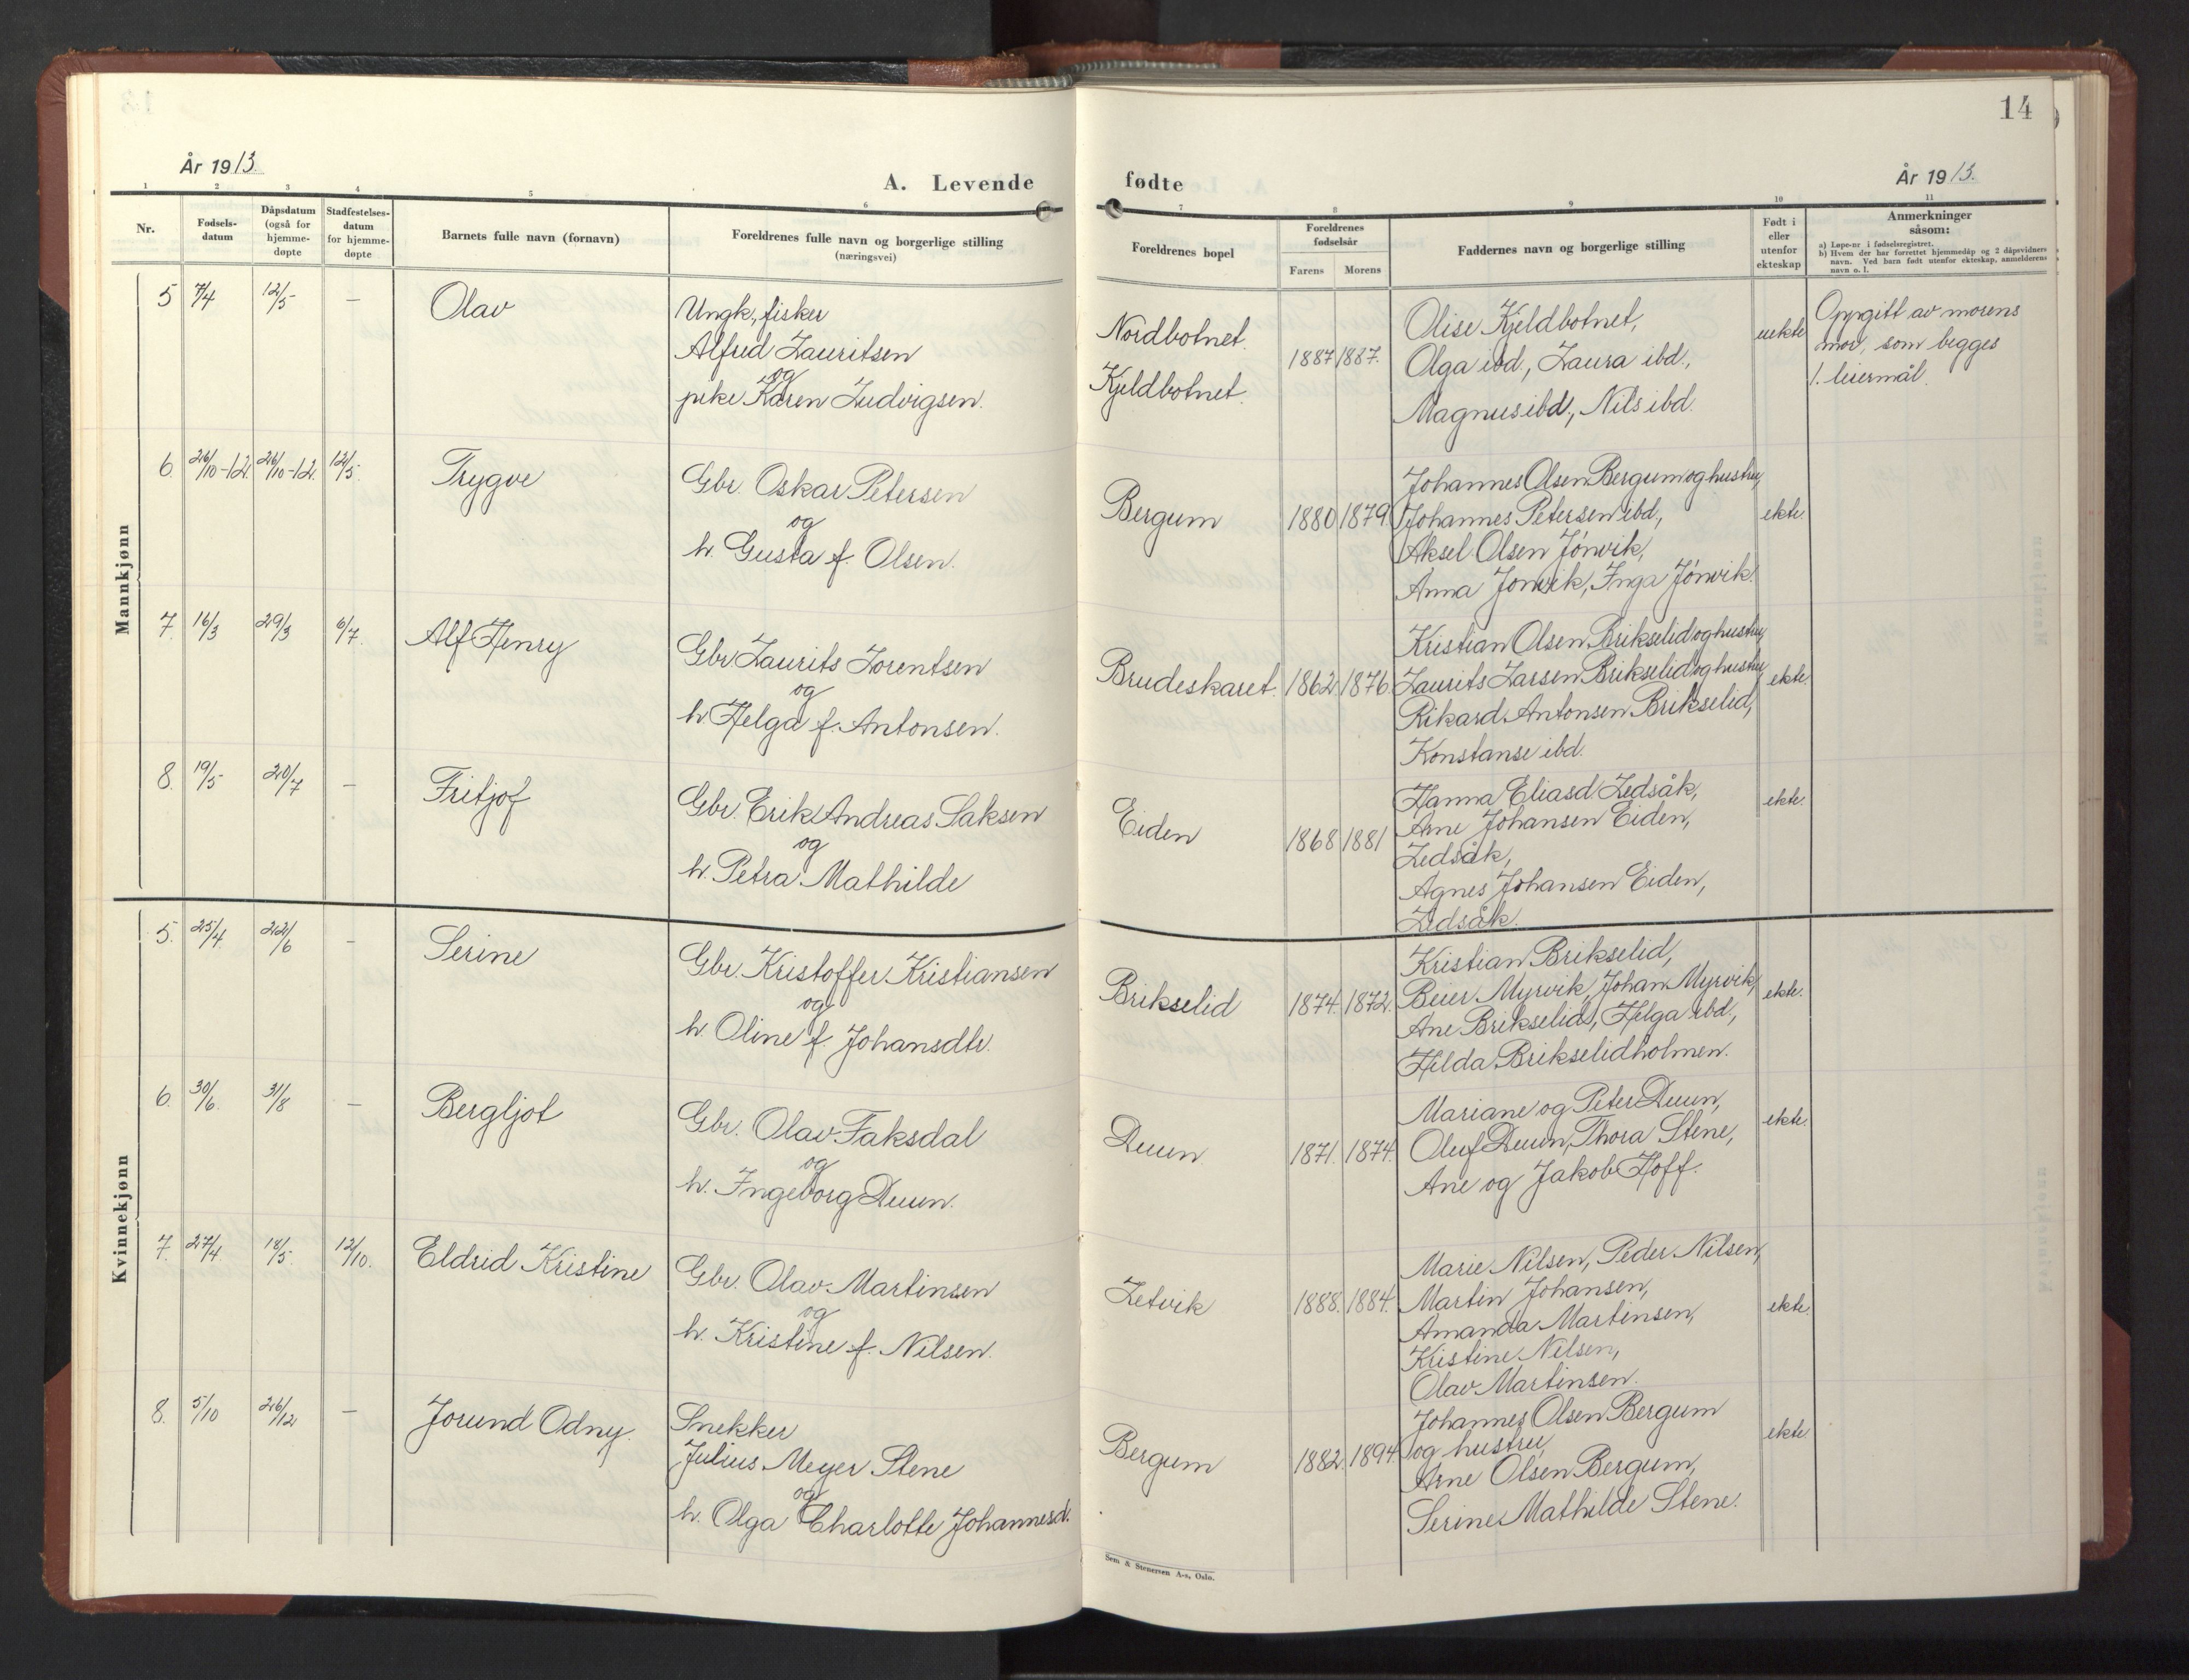 14
År 1913.
A. Levende
fødte
År 1913.
1 2 3 4 5 6 7 8 9 10 11
Nr.
Fødsels-
datum
Dåpsdatum
(også for
hjemme-
døpte
Stadfestelses-
datum
for hjemme-
døpte
Barnets fulle navn (fornavn)
Foreldrenes fulle navn og borgerlige stilling
(næringsvei)
Foreldrenes bopel
Foreldrenes
fødselsår
Farens Morens
Faddernes navn og borgerlige stilling
Født i
eller
utenfor
ekteskap
Anmerkninger
såsom:
a) Løpe-nr i fødselsregistret.
b) Hvem der har forrettet hjemmedåp og 2 dåpsvidners
navn. Ved barn født utenfor ekteskap, anmelderens
navn o. l.
Mannkjønn
5 7/4 12/5 – Olav
Ungk., fisker
Alfred Lauritsen
og
pike Karen Ludvigsen.
Nordbotnet.
Kjeldbotnet.
1887 1887.
Olise Kjeldbotnet,
Olga ibd., Laura ibd.,
Magnus ibd., Nils ibd.
uekte
Oppgitt av morens
mor, som begges
1. leiermål.
6. 26/10-12. 26/10-12. 12/5. Trygve
Gbr. Oskar Petersen
og
h. Gusta f. Olsen.
Bergum
1880 1879.
Johannes Olsen Bergum og hustru,
Johannes Petersen ibd.,
Aksel Olsen Jönvik,
Anna Jönvik, Inga Jönvik.
ekte.
7. 16/3 29/3 6/7. Alf Henry
Gbr Laurits Lorentsen
og
h. Helga f. Antonsen.
Brudeskaret.
1862 1876.
Kristian Olsen Brikselid og hustru,
Laurits Larsen Brikselid og hustru
Rikard Antonsen Brikselid,
Konstanse ibd.
ekte.
8. 19/5 20/7 – Fritjof
Gbr. Erik Andreas Saksen
og
h. Petra Mathilde
Eiden
1868 1881
Hanna Eliasd. Ledsåk,
Arne Johansen Eiden,
Ledsåk,
Agnes Johansen Eiden,
Ledsåk.
ekte.
Kvinnekjønn
5. 25/4 22/6 – Serine
Gbr. Kristoffer Kristiansen
og
h. Oline f. Johansdtr.
Brikselid
1874. 1872.
Kristian Brikselid,
Beier Myrvik, Johan Myrvik,
Ane Brikselid, Helga ibd.,
Hilda Brikselidholmen.
ekte.
6. 30/6. 31/8 – Bergljot
Gbr. Olav Faksdal
og
h. Ingeborg Duun.
Duun
1871. 1874.
Mariane og Peter Duun,
Oluf Duun, Thora Stene,
Ane og Jakob Hoff.
ekte.
7. 27/4 18/5. 12/10. Eldrid Kristine
Gbr. Olav Martinsen
og
h. Kristine f. Nilsen.
Letvik
1888. 1884.
Marie Nilsen, Peder Nilsen,
Martin Johansen,
Amanda Martinsen,
Kristine Nilsen,
Olav Martinsen.
ekte.
8. 5/10 26/12 – Jorund Odny.
Snekker
Julius Meyer Stene
og
h. Olga Charlotte Johannesd.
Bergum
1882. 1894.
Johannes Olsen Bergum
og hustru,
Arne Olsen Bergum,
Serine Mathilde Stene.
ekte.
Sem & Stenersen A-s, Oslo.